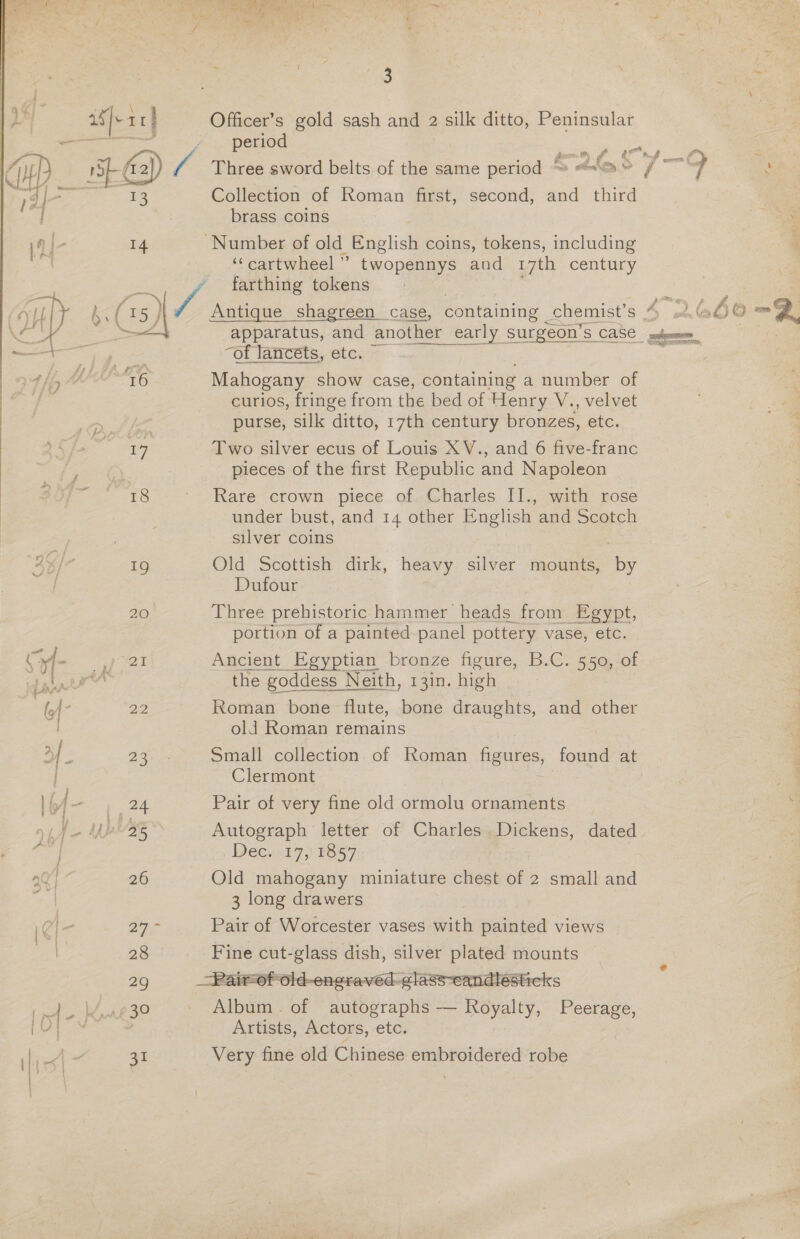 3
11 Officer's gold sash and 2 silk ditto, Peninsular
period
12 Three sword belts of the same period
13 Collection of Roman first, second, and third
brass coins
14 Number of old English coins, tokens, including
“cartwheel” twopennys and 17th century
farthing tokens
15 Antique shagreen case, containing chemist's
apparatus, and another early surgeon's case
of lancets, etc.
16 Mahogany show case, containing a number of
curios, fringe from the bed of Henry V., velvet
purse, silk ditto, 17th century bronzes, etc.
17 Two silver ecus of Louis XV., and 6 five-franc
pieces of the first Republic and Napoleon
18 Rare crown piece of Charles II., with rose
under bust, and 14 other English and Scotch
silver coins
19 Old Scottish dirk, heavy silver mounts, by
Dufour
20 Three prehistoric hammer heads from Egypt,
portion of a painted panel pottery vase, etc.
21 Ancient Egyptian bronze figure, B.C. 550, of
the goddess Neith, 13in. high
22 Roman bone flute, bone draughts, and other
old Roman remains
23 Small collection of Roman figures, found at
Clermont
24 Pair of very fine old ormolu ornaments
25 Autograph letter of Charles Dickens, dated
Dec. 17, 1857
26 Old mahogany miniature chest of 2 small and
3 long drawers
27 Pair of Worcester vases with painted views
28 Fine cut-glass dish, silver plated mounts
29 Pair of old engraved glass candlesticks
30 Album of autographs — Royalty, Peerage,
Artists, Actors, etc.
31 Very fine old Chinese embroidered robe